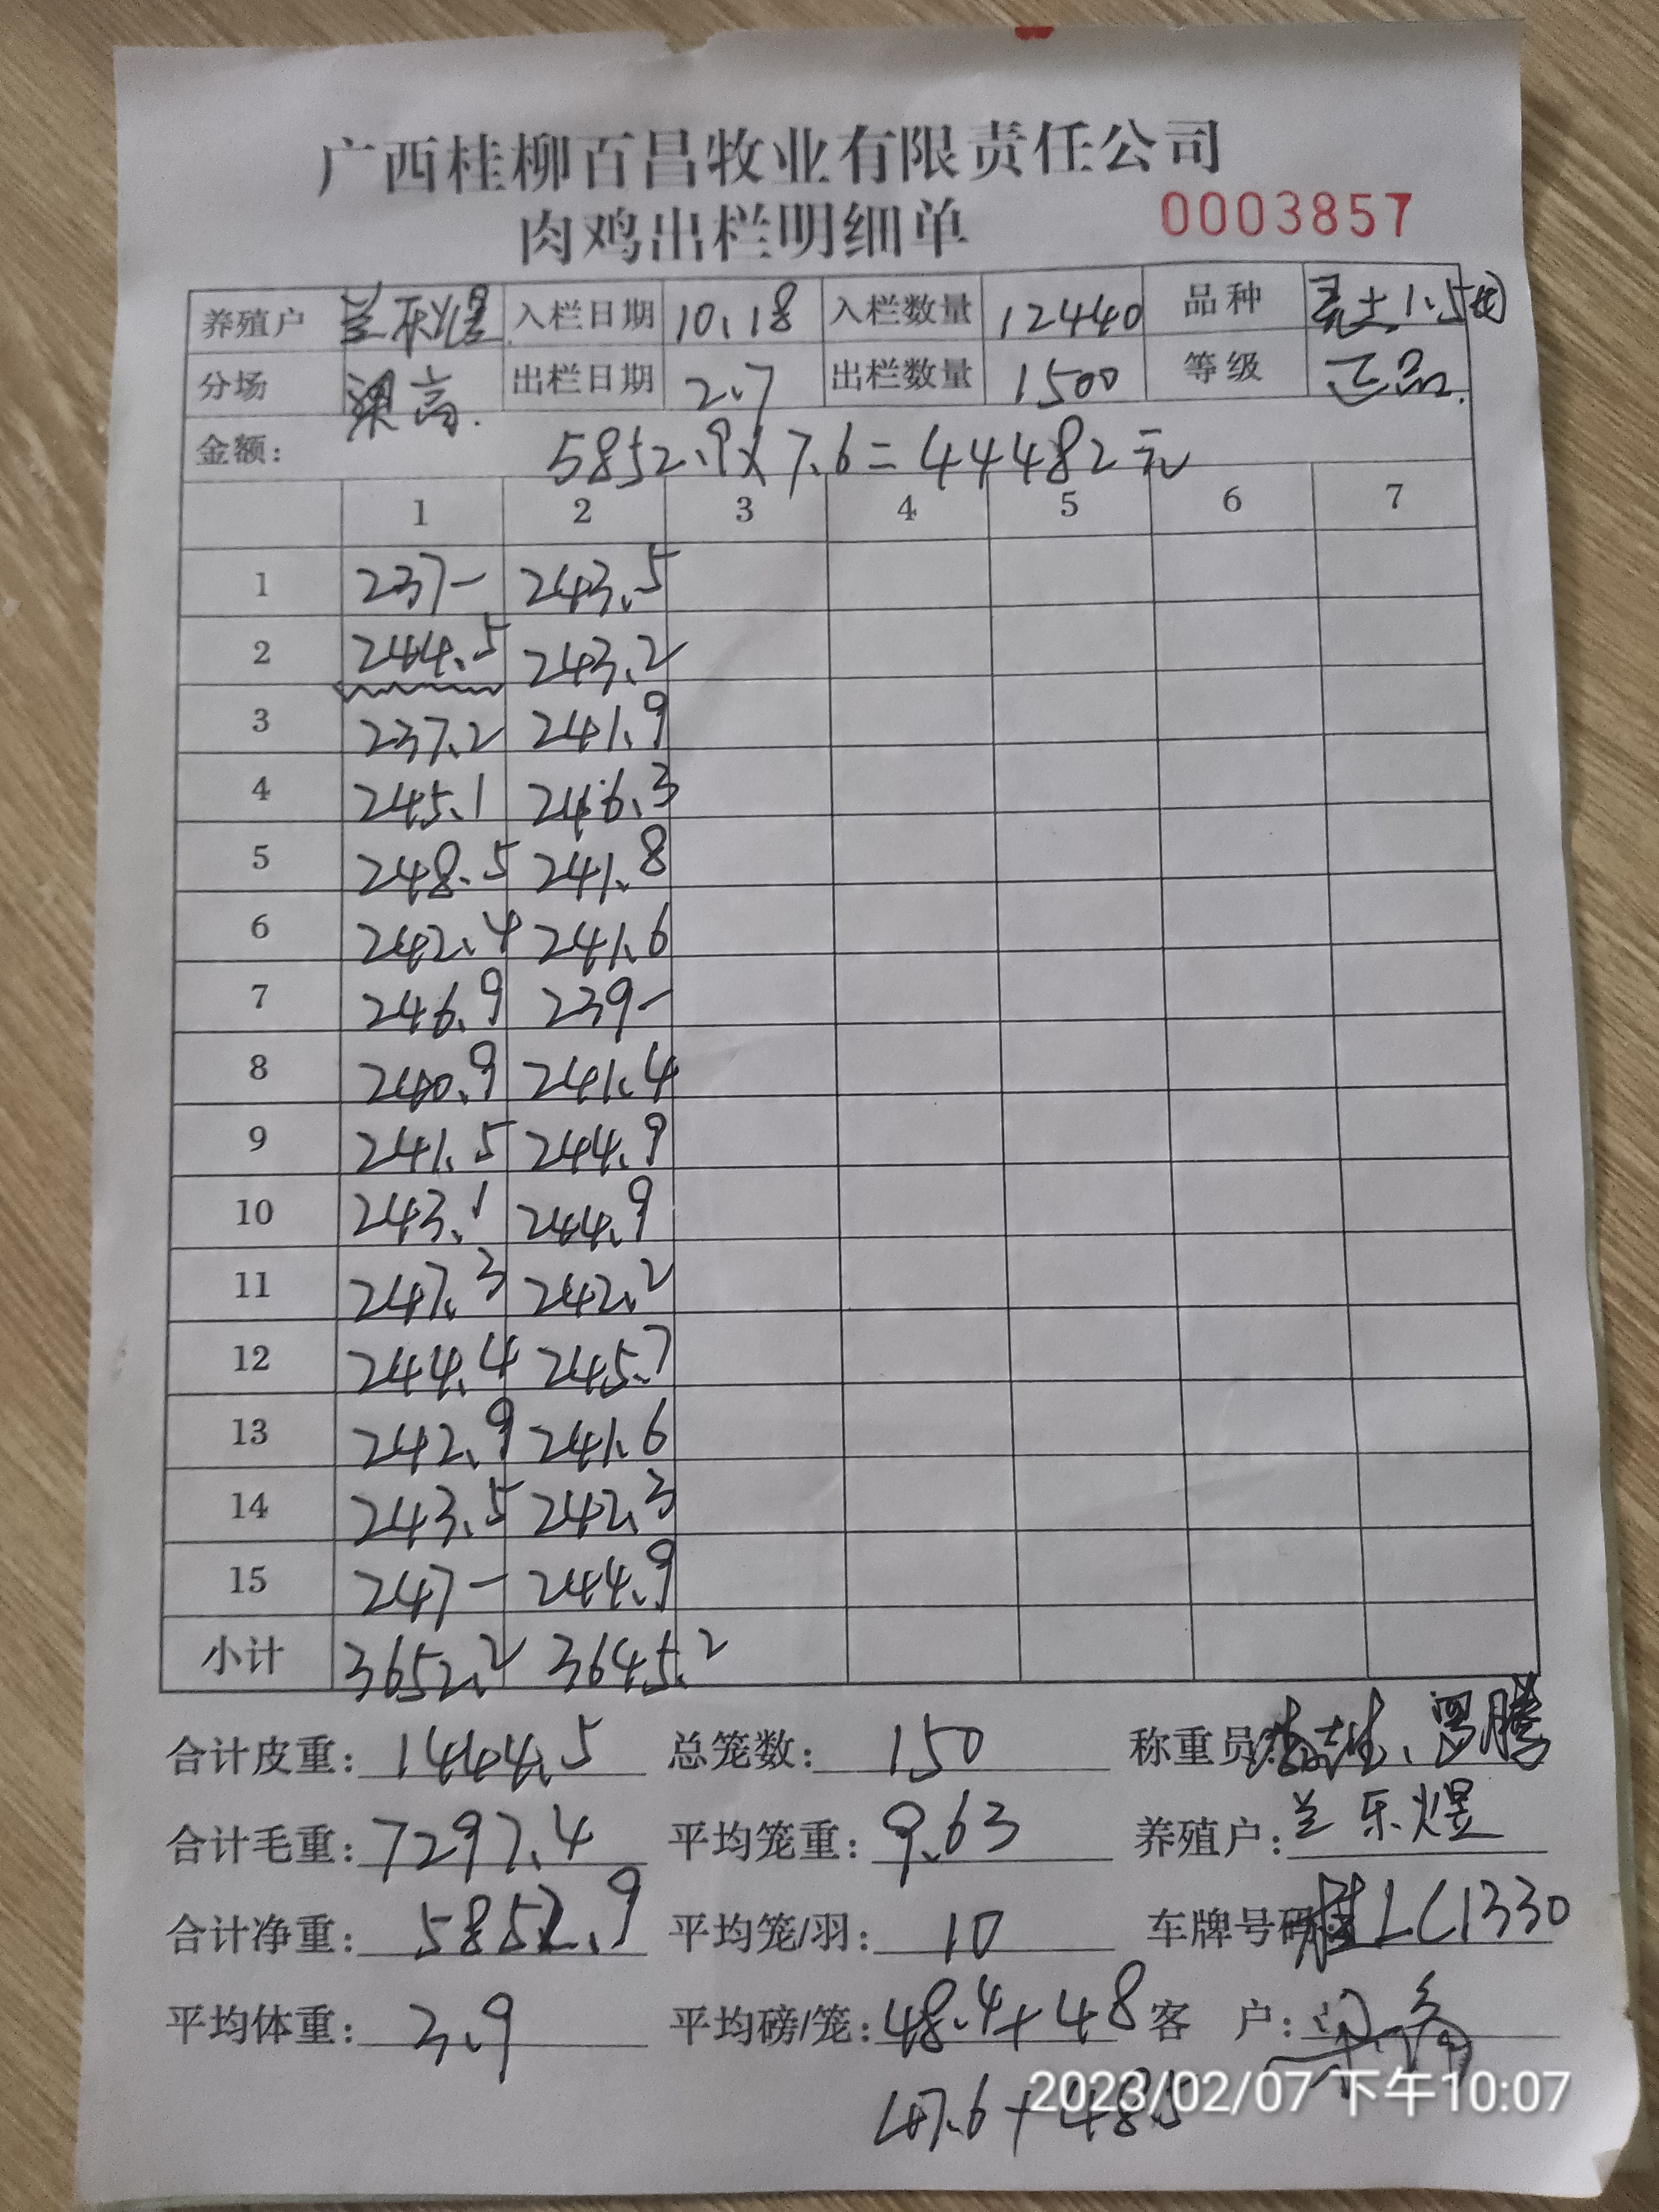 广西桂柳百昌牧业有限责任公司
肉鸡出栏明细单 0003857
养殖户 兰乐煜 入栏日期 10.18 入栏数量 12440 品种 土1.5
分场 梁高. 出栏日期 2.7 出栏数量 1500 等级 正品.
金额: 5852.9×7.6=44482元
1 2 3 4 5 6 7
1 237- 243.5
2 244.5 243.2
3 237.2 241.9
4 245.1 246.3
5 248.5 241.8
6 242.4 241.6
7 246.9 239-
8 240.9 241.4
9 241.5 244.9
10 243.1 244.9
11 247.3 242.2
12 244.4 245.7
13 242.9 241.6
14 243.5 242.3
15 247- 244.9
小计 3652.2 3645.2
合计皮重: 1444.5 总笼数: 150 称重员: 、罗腾
合计毛重: 7297.4 平均笼重: 9.63 养殖户: 兰乐煜
合计净重: 5852.9 平均笼/羽: 10 车牌号码 桂LC1330
平均体重: 3.9 平均磅/笼: 48.4+48 客 户:
47.6+48.5
2023/02/07 下午10:07